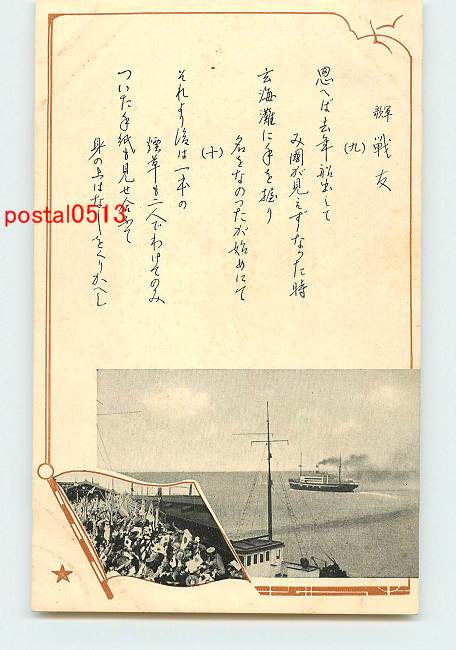 軍歌 戦友
(九)
思へば去年船出して
み國が見えずなつた時
玄海灘に手を握り
名をなのつたが始めにて
(十)
それより後は一本の
煙草も二人でわけてのみ
ついた手紙も見せ合ふて
身の上はなしをくりかへし
postal0513